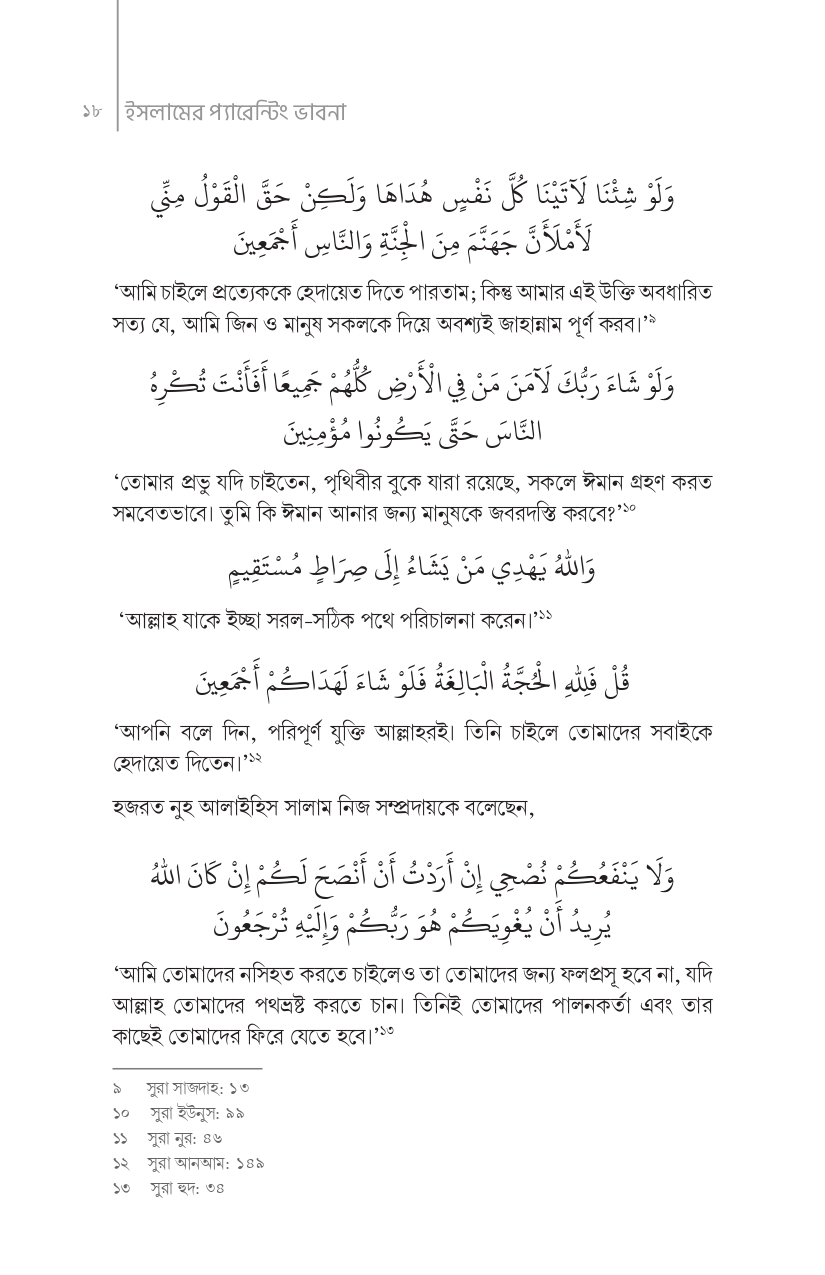 ১৮ ইসলামের প্যারেন্টিং ভাবনা
وَلَوْ شِئْنَا لَآتَيْنَا كُلَّ نَفْسٍ هُدَاهَا وَلَكِنْ حَقَّ الْقَوْلُ مِنِّي
لَأَمْلَأَنَّ جَهَنَّمَ مِنَ الْجِنَّةِ وَالنَّاسِ أَجْمَعِينَ
‘আমি চাইলে প্রত্যেককে হেদায়েত দিতে পারতাম; কিন্তু আমার এই উক্তি অবধারিত
সত্য যে, আমি জিন ও মানুষ সকলকে দিয়ে অবশ্যই জাহান্নাম পূর্ণ করব।’৯
وَلَوْ شَاءَ رَبُّكَ لَآمَنَ مَنْ فِي الْأَرْضِ كُلُّهُمْ جَمِيعًا أَفَأَنْتَ تُكْرِهُ
النَّاسَ حَتَّى يَكُونُوا مُؤْمِنِينَ
‘তোমার প্রভু যদি চাইতেন, পৃথিবীর বুকে যারা রয়েছে, সকলে ঈমান গ্রহণ করত
সমবেতভাবে। তুমি কি ঈমান আনার জন্য মানুষকে জবরদস্তি করবে?’১০
وَاللهُ يَهْدِي مَنْ يَشَاءُ إِلَى صِرَاطٍ مُسْتَقِيمٍ
‘আল্লাহ যাকে ইচ্ছা সরল-সঠিক পথে পরিচালনা করেন।’১১
قُلْ فَلِلّٰهِ الْحُجَّةُ الْبَالِغَةُ فَلَوْ شَاءَ لَهَدَاكُمْ أَجْمَعِينَ
‘আপনি বলে দিন, পরিপূর্ণ যুক্তি আল্লাহরই। তিনি চাইলে তোমাদের সবাইকে
হেদায়েত দিতেন।’১২
হজরত নুহ আলাইহিস সালাম নিজ সম্প্রদায়কে বলেছেন,
وَلَا يَنْفَعُكُمْ نُصْحِي إِنْ أَرَدْتُ أَنْ أَنْصَحَ لَكُمْ إِنْ كَانَ اللهُ
يُرِيدُ أَنْ يُغْوِيَكُمْ هُوَ رَبُّكُمْ وَإِلَيْهِ تُرْجَعُونَ
‘আমি তোমাদের নসিহত করতে চাইলেও তা তোমাদের জন্য ফলপ্রসূ হবে না, যদি
আল্লাহ তোমাদের পথভ্রষ্ট করতে চান। তিনিই তোমাদের পালনকর্তা এবং তার
কাছেই তোমাদের ফিরে যেতে হবে।’১৩
৯ সুরা সাজদাহ: ১৩
১০ সুরা ইউনুস: ৯৯
১১ সুরা নুর: ৪৬
১২ সুরা আনআম: ১৪৯
১৩ সুরা হুদ: ৩৪